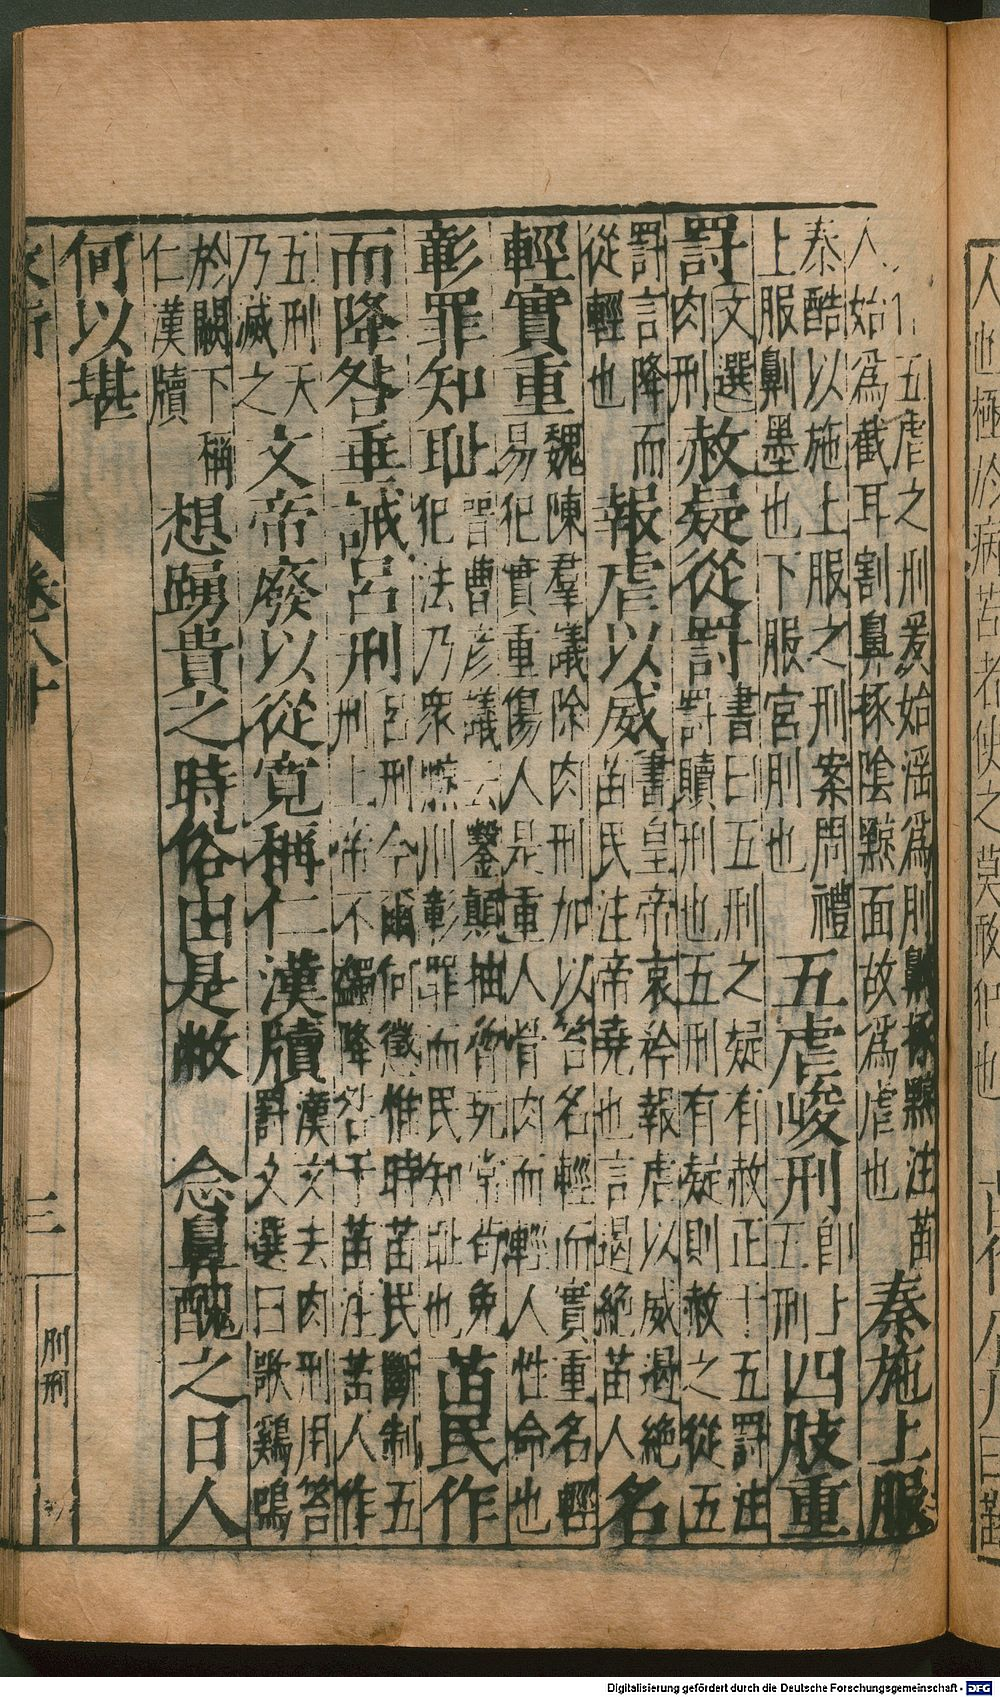 人幽極冷病苦者使之莫敢犯也
五虐之刑爰始淫爲刖劓椓黥注苗
人始爲截耳割鼻椓陰黥面故爲虐也
秦施上服
秦酷以施上服之刑案周禮
上服劓墨也下服宮刖也
五虐峻刑
即上
五刑
四肢重
罰
文選
肉刑
赦疑從罰
書曰五刑之疑有赦正十五罰注
罰贖刑也五刑有疑則赦之從五
罰言降而
從輕也
報虐以威
書皇帝哀矜報虐以威遏絶
苗民注帝堯也言遏絶苗人
名
輕實重
魏陳羣議除肉刑加以笞名輕而實重名輕
易犯實重傷人是重人骨肉而輕人性命也
彰罪知恥
晉曹彦議云鑿顛抽脅死守苟免
犯法乃衆黥刖彰罪而民知恥也
苗民作
而降咎垂誡呂刑
呂刑今爾何徵惟時苗民斷制五
刑上帝不蠲降咎于苗注苦人作
五刑天
乃滅之
文帝廢以從寛稱仁漢牘
漢文去肉刑用笞
罸文選曰歌鷄鳴
於闕下稱
仁漢牘
想踴貴之時俗由是敝 念鼻醜之日人
何以堪
卷八十 三 刖刑
Digitalisierung gefördert durch die Deutsche Forschungsgemeinschaft - DFG